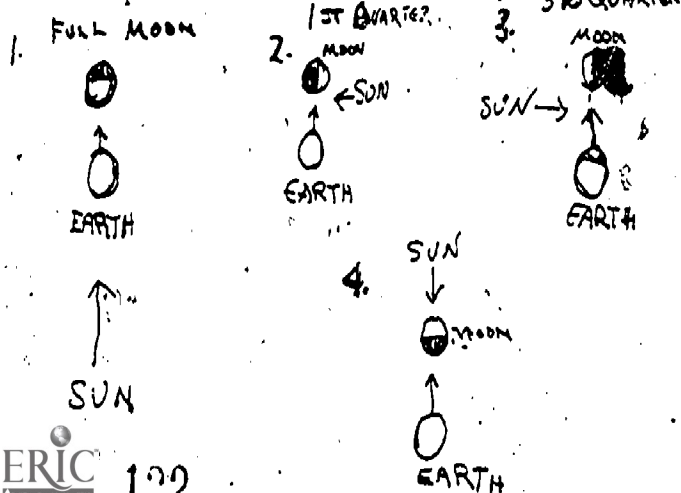 1. FULL MOON
EARTH
SUN
2. 1ST QUARTER.
MOON
←SUN
EARTH
3. 3RD QUARTER
MOON
SUN→
EARTH
4. SUN
MOON
EARTH
ERIC